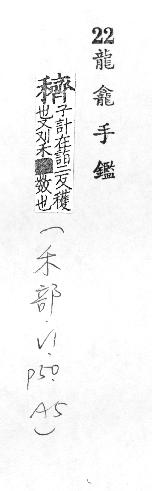 22 龍龕手鑑
穧 子計在詣二反穫
也又刈禾 数也
(禾部.VI.p50.A5)